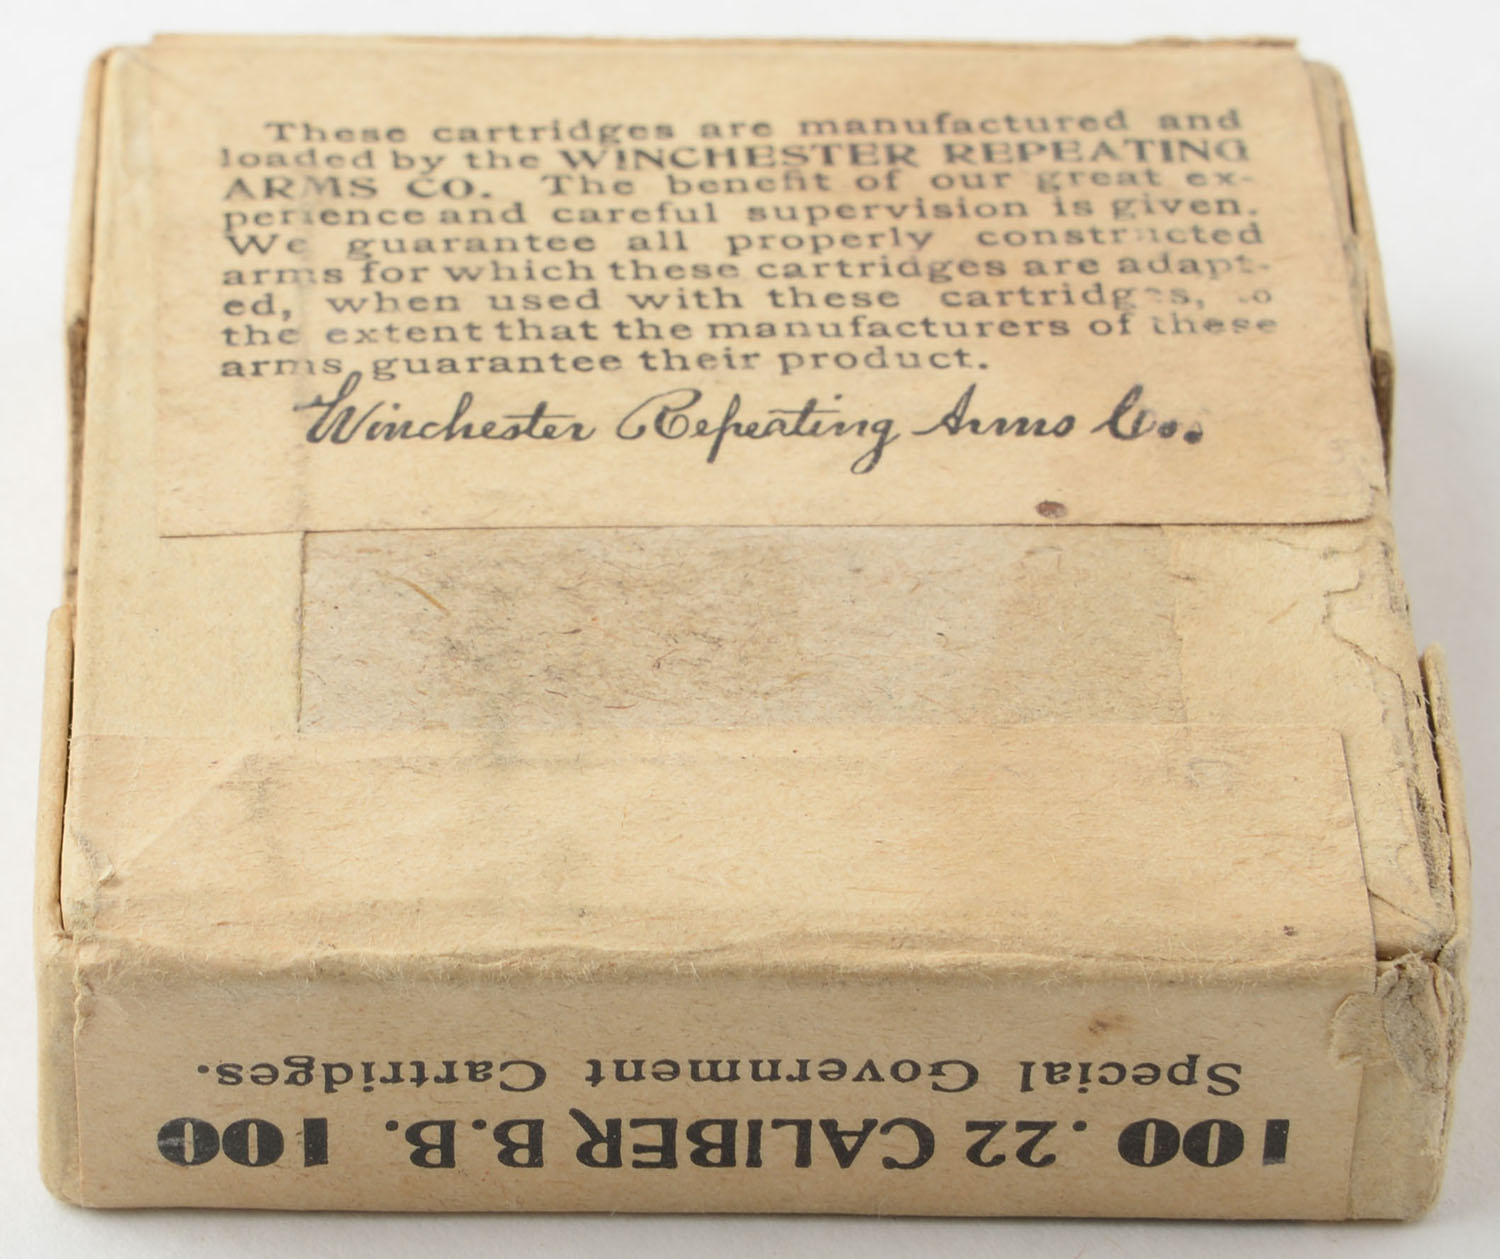 These cartridges are manufactured and
loaded by the WINCHESTER REPEATING
ARMS CO. The benefit of our great ex-
perience and careful supervision is given.
We guarantee all properly constructed
arms for which these cartridges are adapt-
ed, when used with these cartridges, to
the extent that the manufacturers of these
arms guarantee their product.
Winchester Repeating Arms Co.
100 .22 CALIBER B.B. 100
Special Government Cartridges.